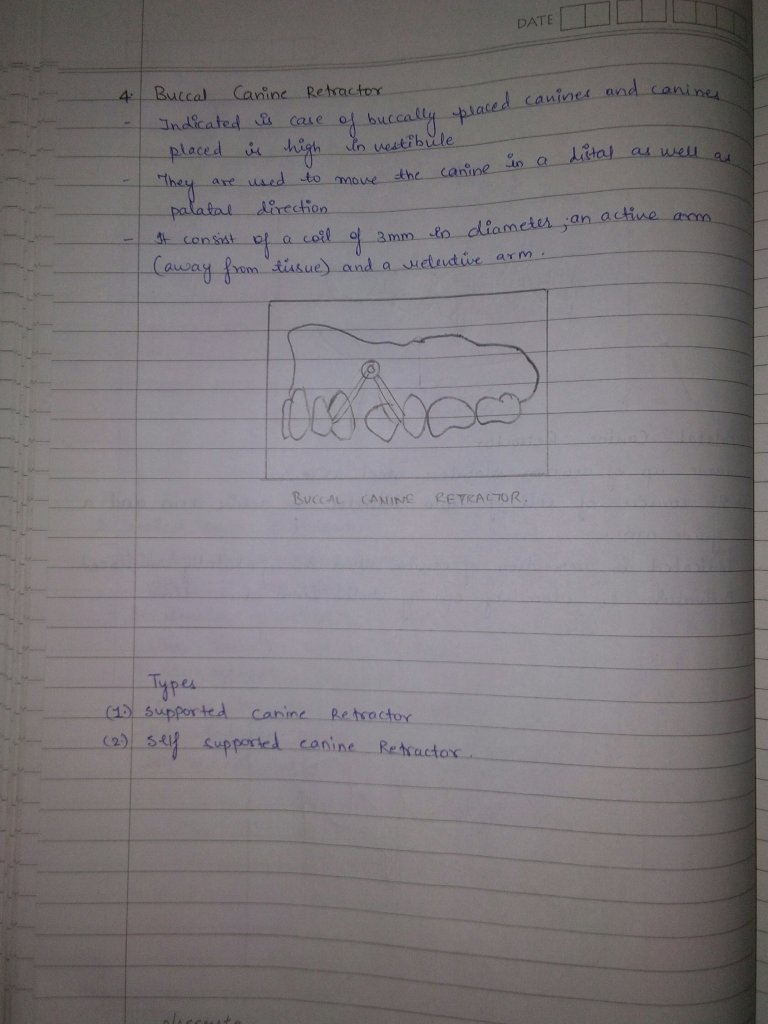 DATE
4. Buccal Canine Retractor
- Indicated is case of buccally placed canines and canines
placed is high in vestibule
- They are used to move the canine in a distal as well as
palatal direction
- It consist of a coil of 3mm in diameter, an active arm
(away from tissue) and a retentive arm.
BUCCAL CANINE RETRACTOR.
Types
(1.) supported canine Retractor
(2.) self supported canine Retractor.